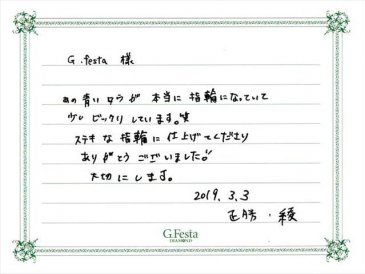 G.festa 様
あの青いロウが 本当に指輪になっていて
少しビックリしています。笑
ステキな指輪に仕上げてくださり
ありがとうございました。
大切にします。
2019.3.3
正勝・綾
G.Festa
DIAMOND